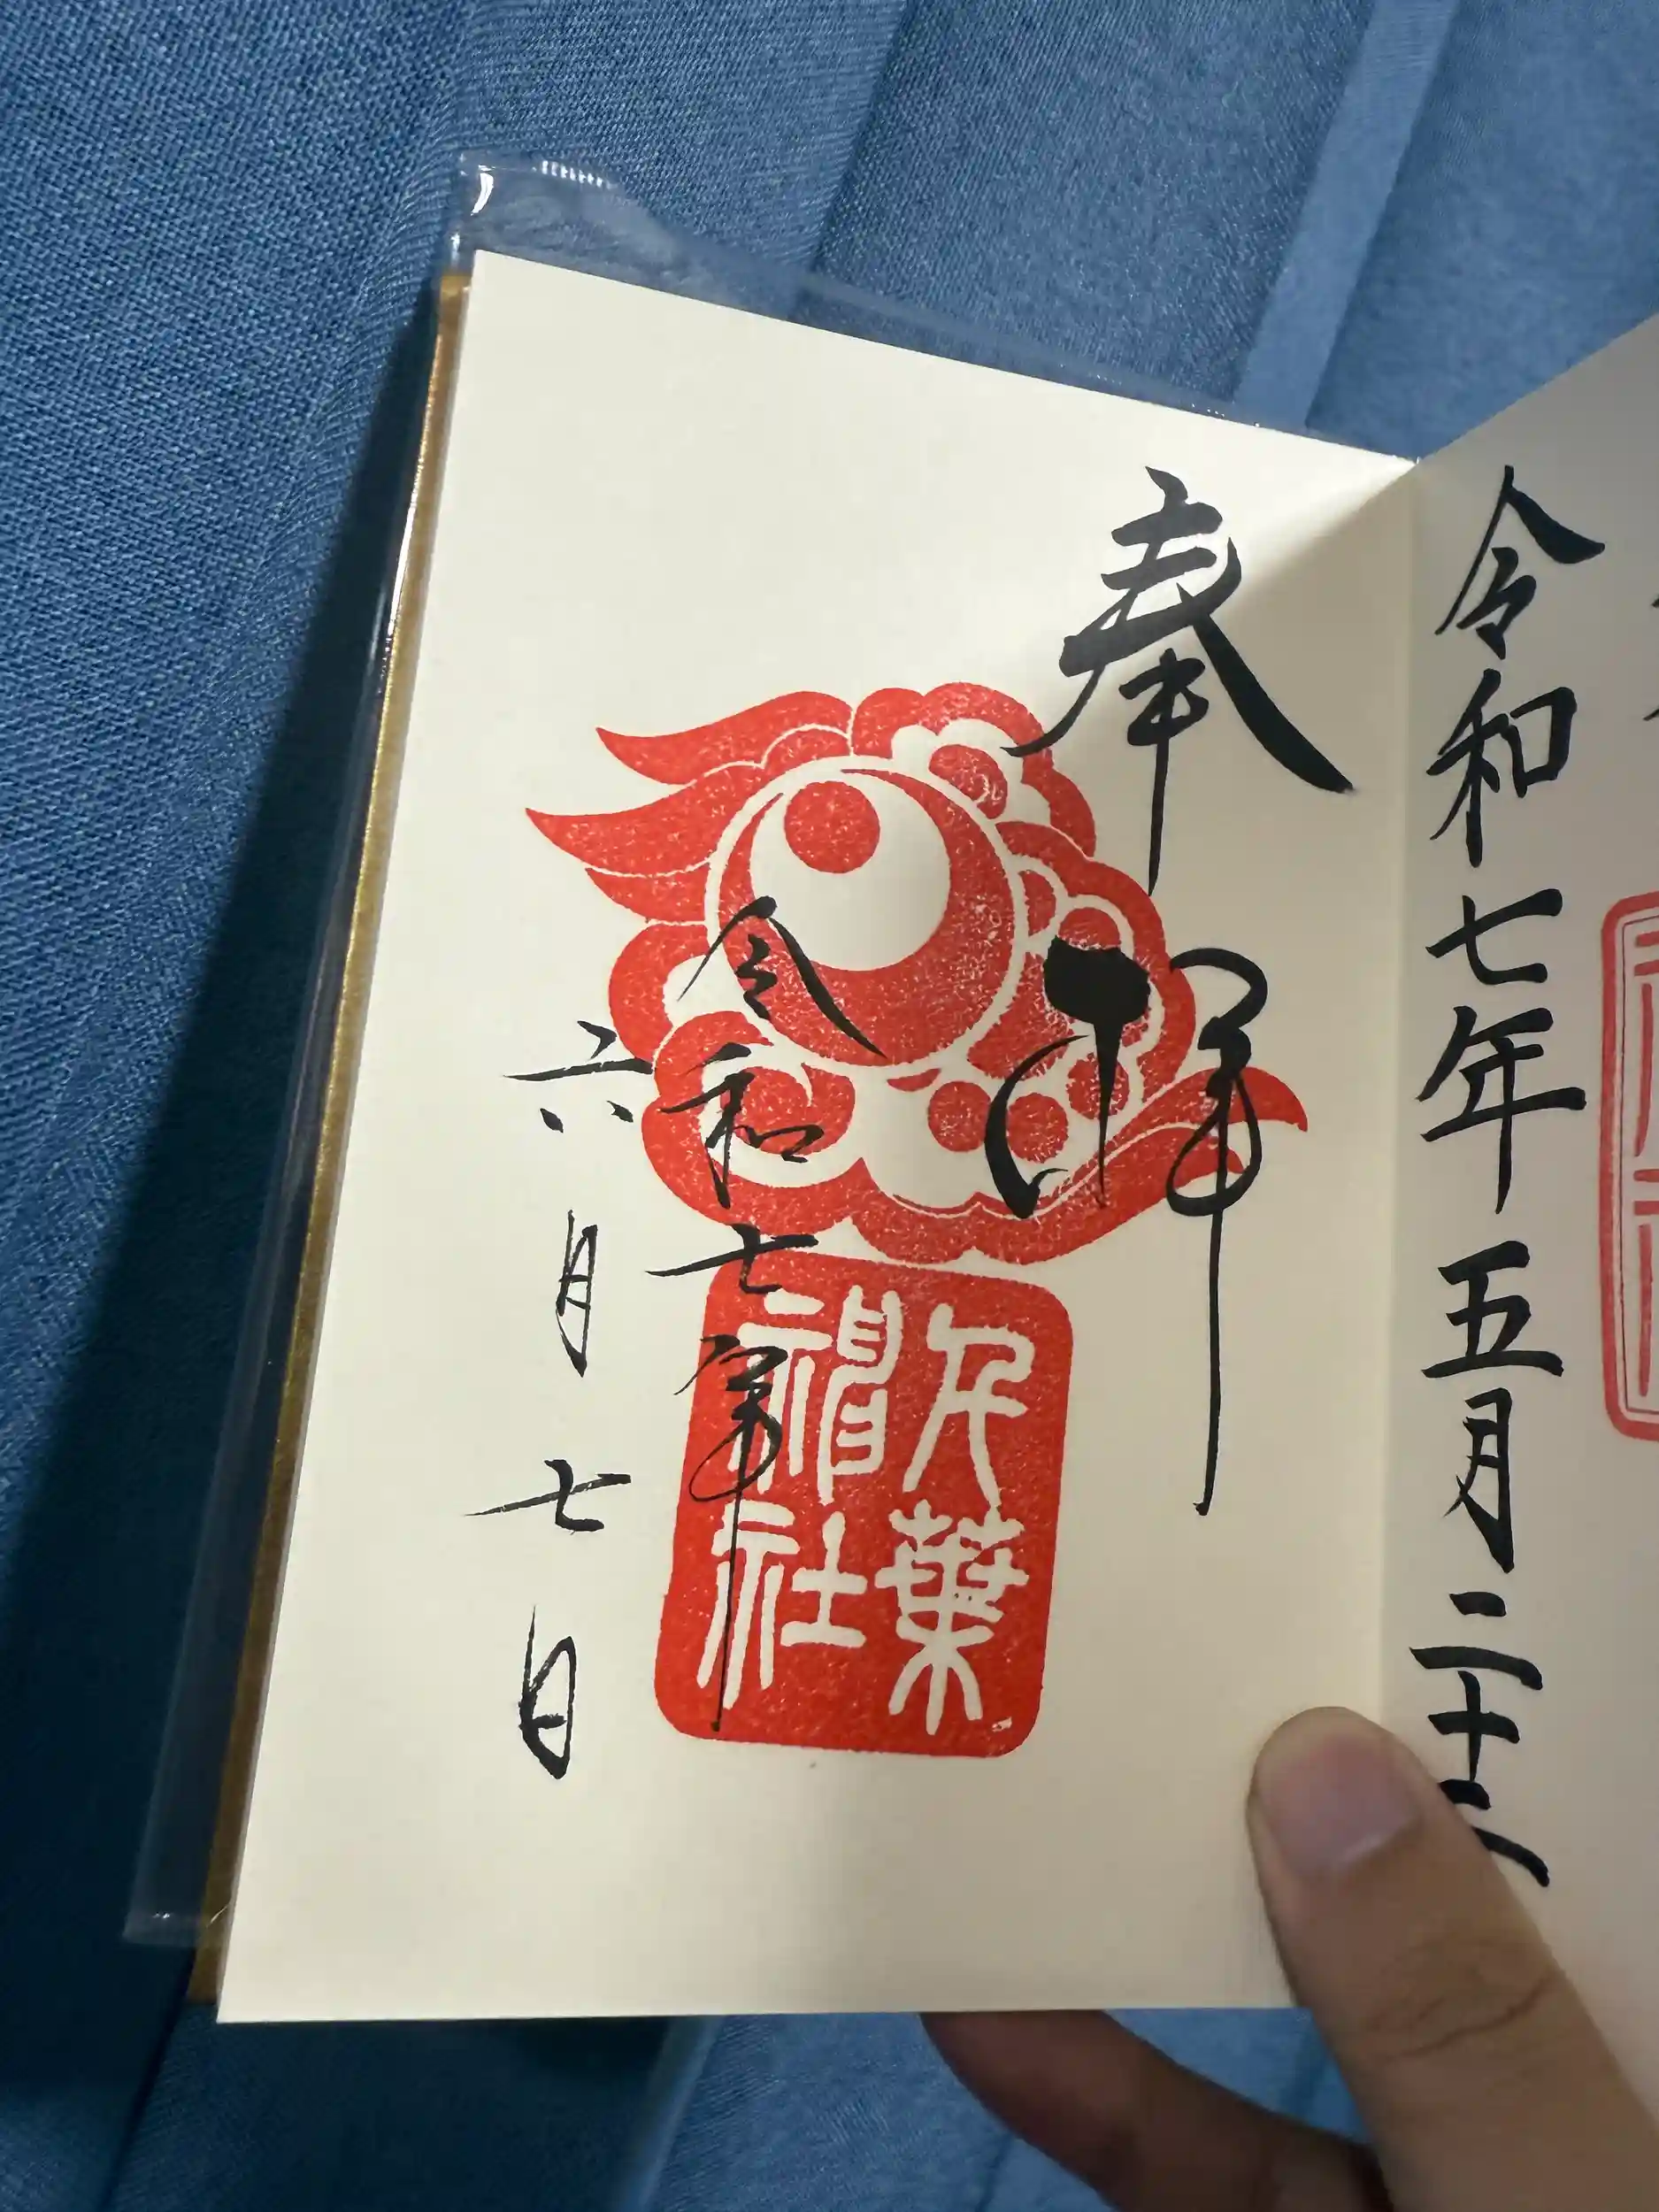 令和七年五月二十
奉拝
千葉
神社
令和七年
六月七日